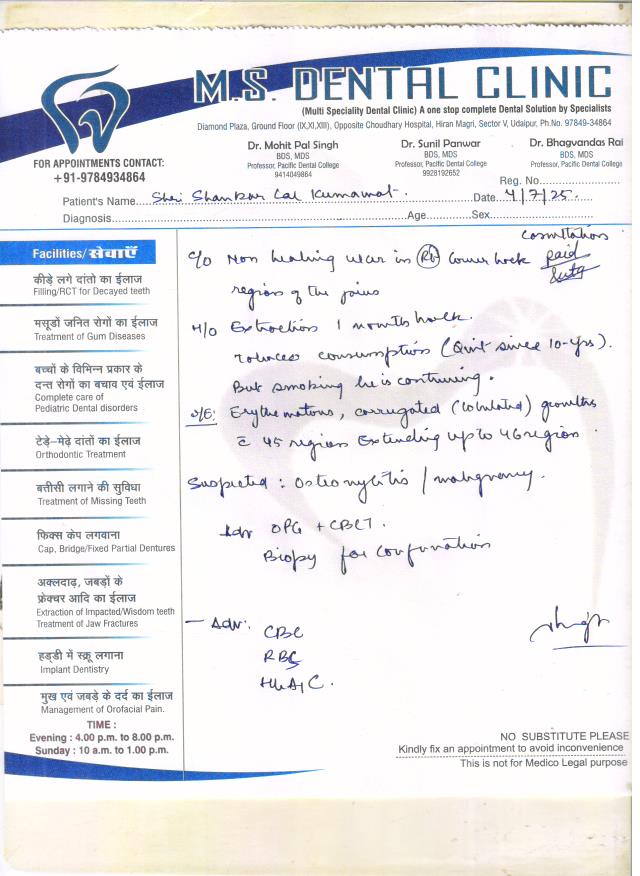 M.S. DENTAL CLINIC
(Multi Speciality Dental Clinic) A one stop complete Dental Solution by Specialists
Diamond Plaza, Ground Floor (IX,XI,XIII), Opposite Choudhary Hospital, Hiran Magri, Sector V, Udaipur, Ph.No. 97849-34864
FOR APPOINTMENTS CONTACT:
+91-9784934864
Dr. Mohit Pal Singh
BDS, MDS
Professor, Pacific Dental College
9414049864
Dr. Sunil Panwar
BDS, MDS
Professor, Pacific Dental College
9928192652
Dr. Bhagvandas Rai
BDS, MDS
Professor, Pacific Dental College
Reg. No.
Patient's Name Shri Shankar Lal Kumawat. Date 4/7/25.
Diagnosis Age Sex
Facilities/सेवाएँ
कीड़े लगे दांतो का ईलाज
Filling/RCT for Decayed teeth
मसूडों जनित रोगों का ईलाज
Treatment of Gum Diseases
बच्चों के विभिन्न प्रकार के
दन्त रोगों का बचाव एवं ईलाज
Complete care of
Pediatric Dental disorders
टेड़े-मेढ़े दांतों का ईलाज
Orthodontic Treatment
बत्तीसी लगाने की सुविधा
Treatment of Missing Teeth
फिक्स केप लगवाना
Cap, Bridge/Fixed Partial Dentures
अक्लदाढ़, जबड़ों के
फ्रेक्चर आदि का ईलाज
Extraction of Impacted/Wisdom teeth
Treatment of Jaw Fractures
हड्डी में स्क्रू लगाना
Implant Dentistry
मुख एवं जबड़े के दर्द का ईलाज
Management of Orofacial Pain.
TIME :
Evening : 4.00 p.m. to 8.00 p.m.
Sunday : 10 a.m. to 1.00 p.m.
paid
C/o Non healing ulcer in Rt
region of the
H/o Extraction 1 months back.
consumption (Quit since 10-yrs).
But smoking he is continuing.
O/E: Erythematous, corrugated growths
c̄ 45 region Extending up to 46 region
Suspected : Osteomylitis / malignancy.
Adv OPG + CBCT.
Biopsy for confirmation
- Adv:
CBC
RBS
HbA1C.
NO SUBSTITUTE PLEASE
Kindly fix an appointment to avoid inconvenience
This is not for Medico Legal purpose